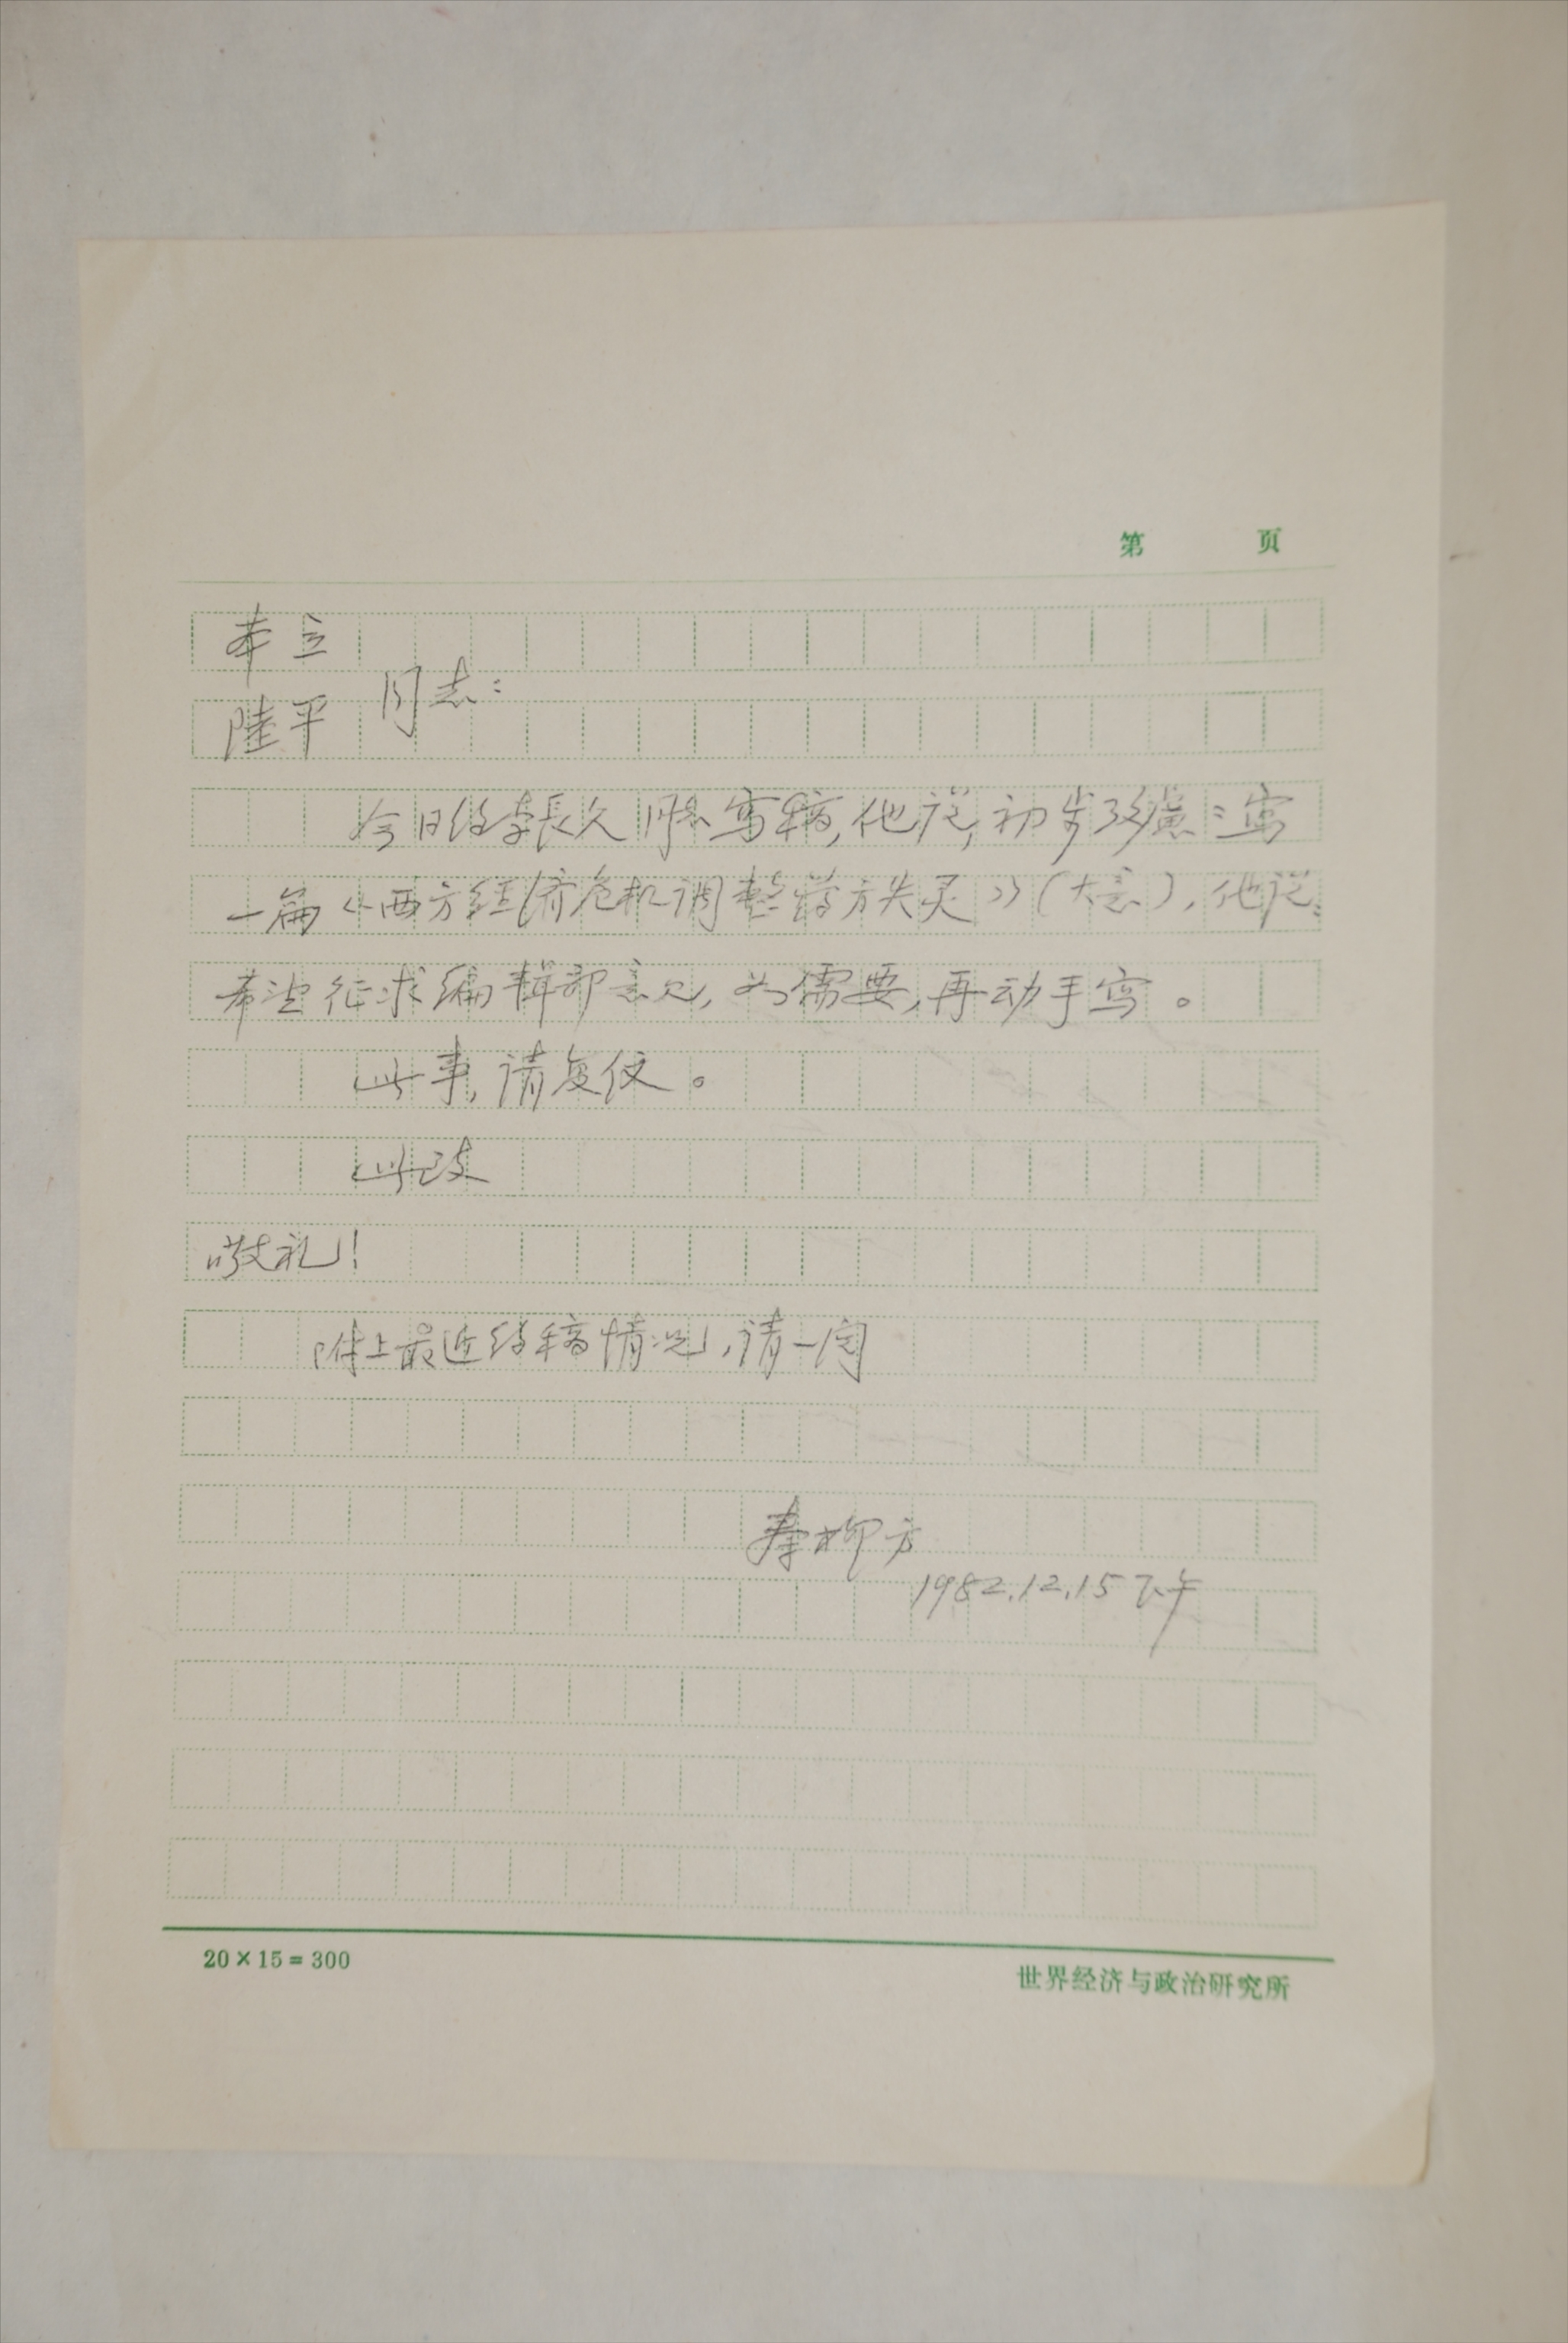 第 页
本立
同志：
陆平
今日约李長久同志写稿，他说，初步考慮：写
一篇《西方经济危机调整药方失灵》（大意），他说：
希望征求编辑部意见，如需要，再动手写。
此事，请复仅。
此致
敬礼！
附上最近约稿情况，请一阅
秦柳方
1982.12.15下午
20×15=300
世界经济与政治研究所